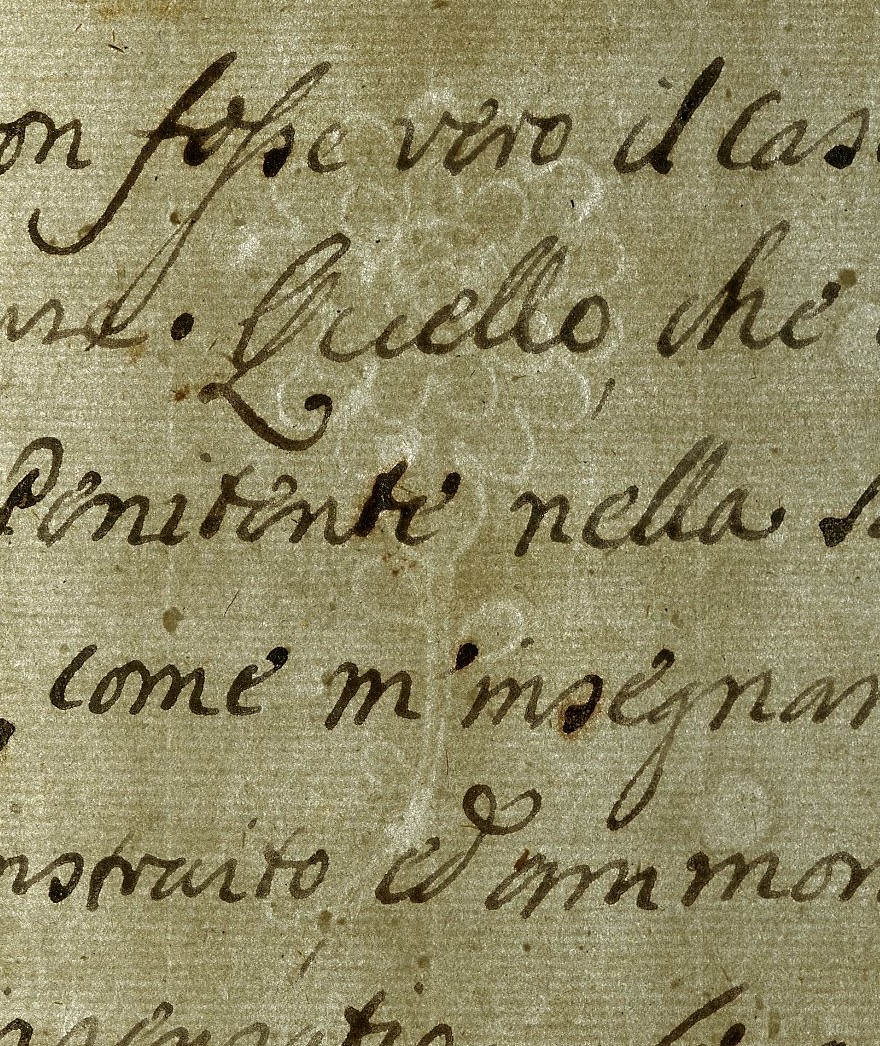 on fosse vero il cas
ure. Quello, che
Penitente nella s
, come m'insegnan
nstruito, ed ammon